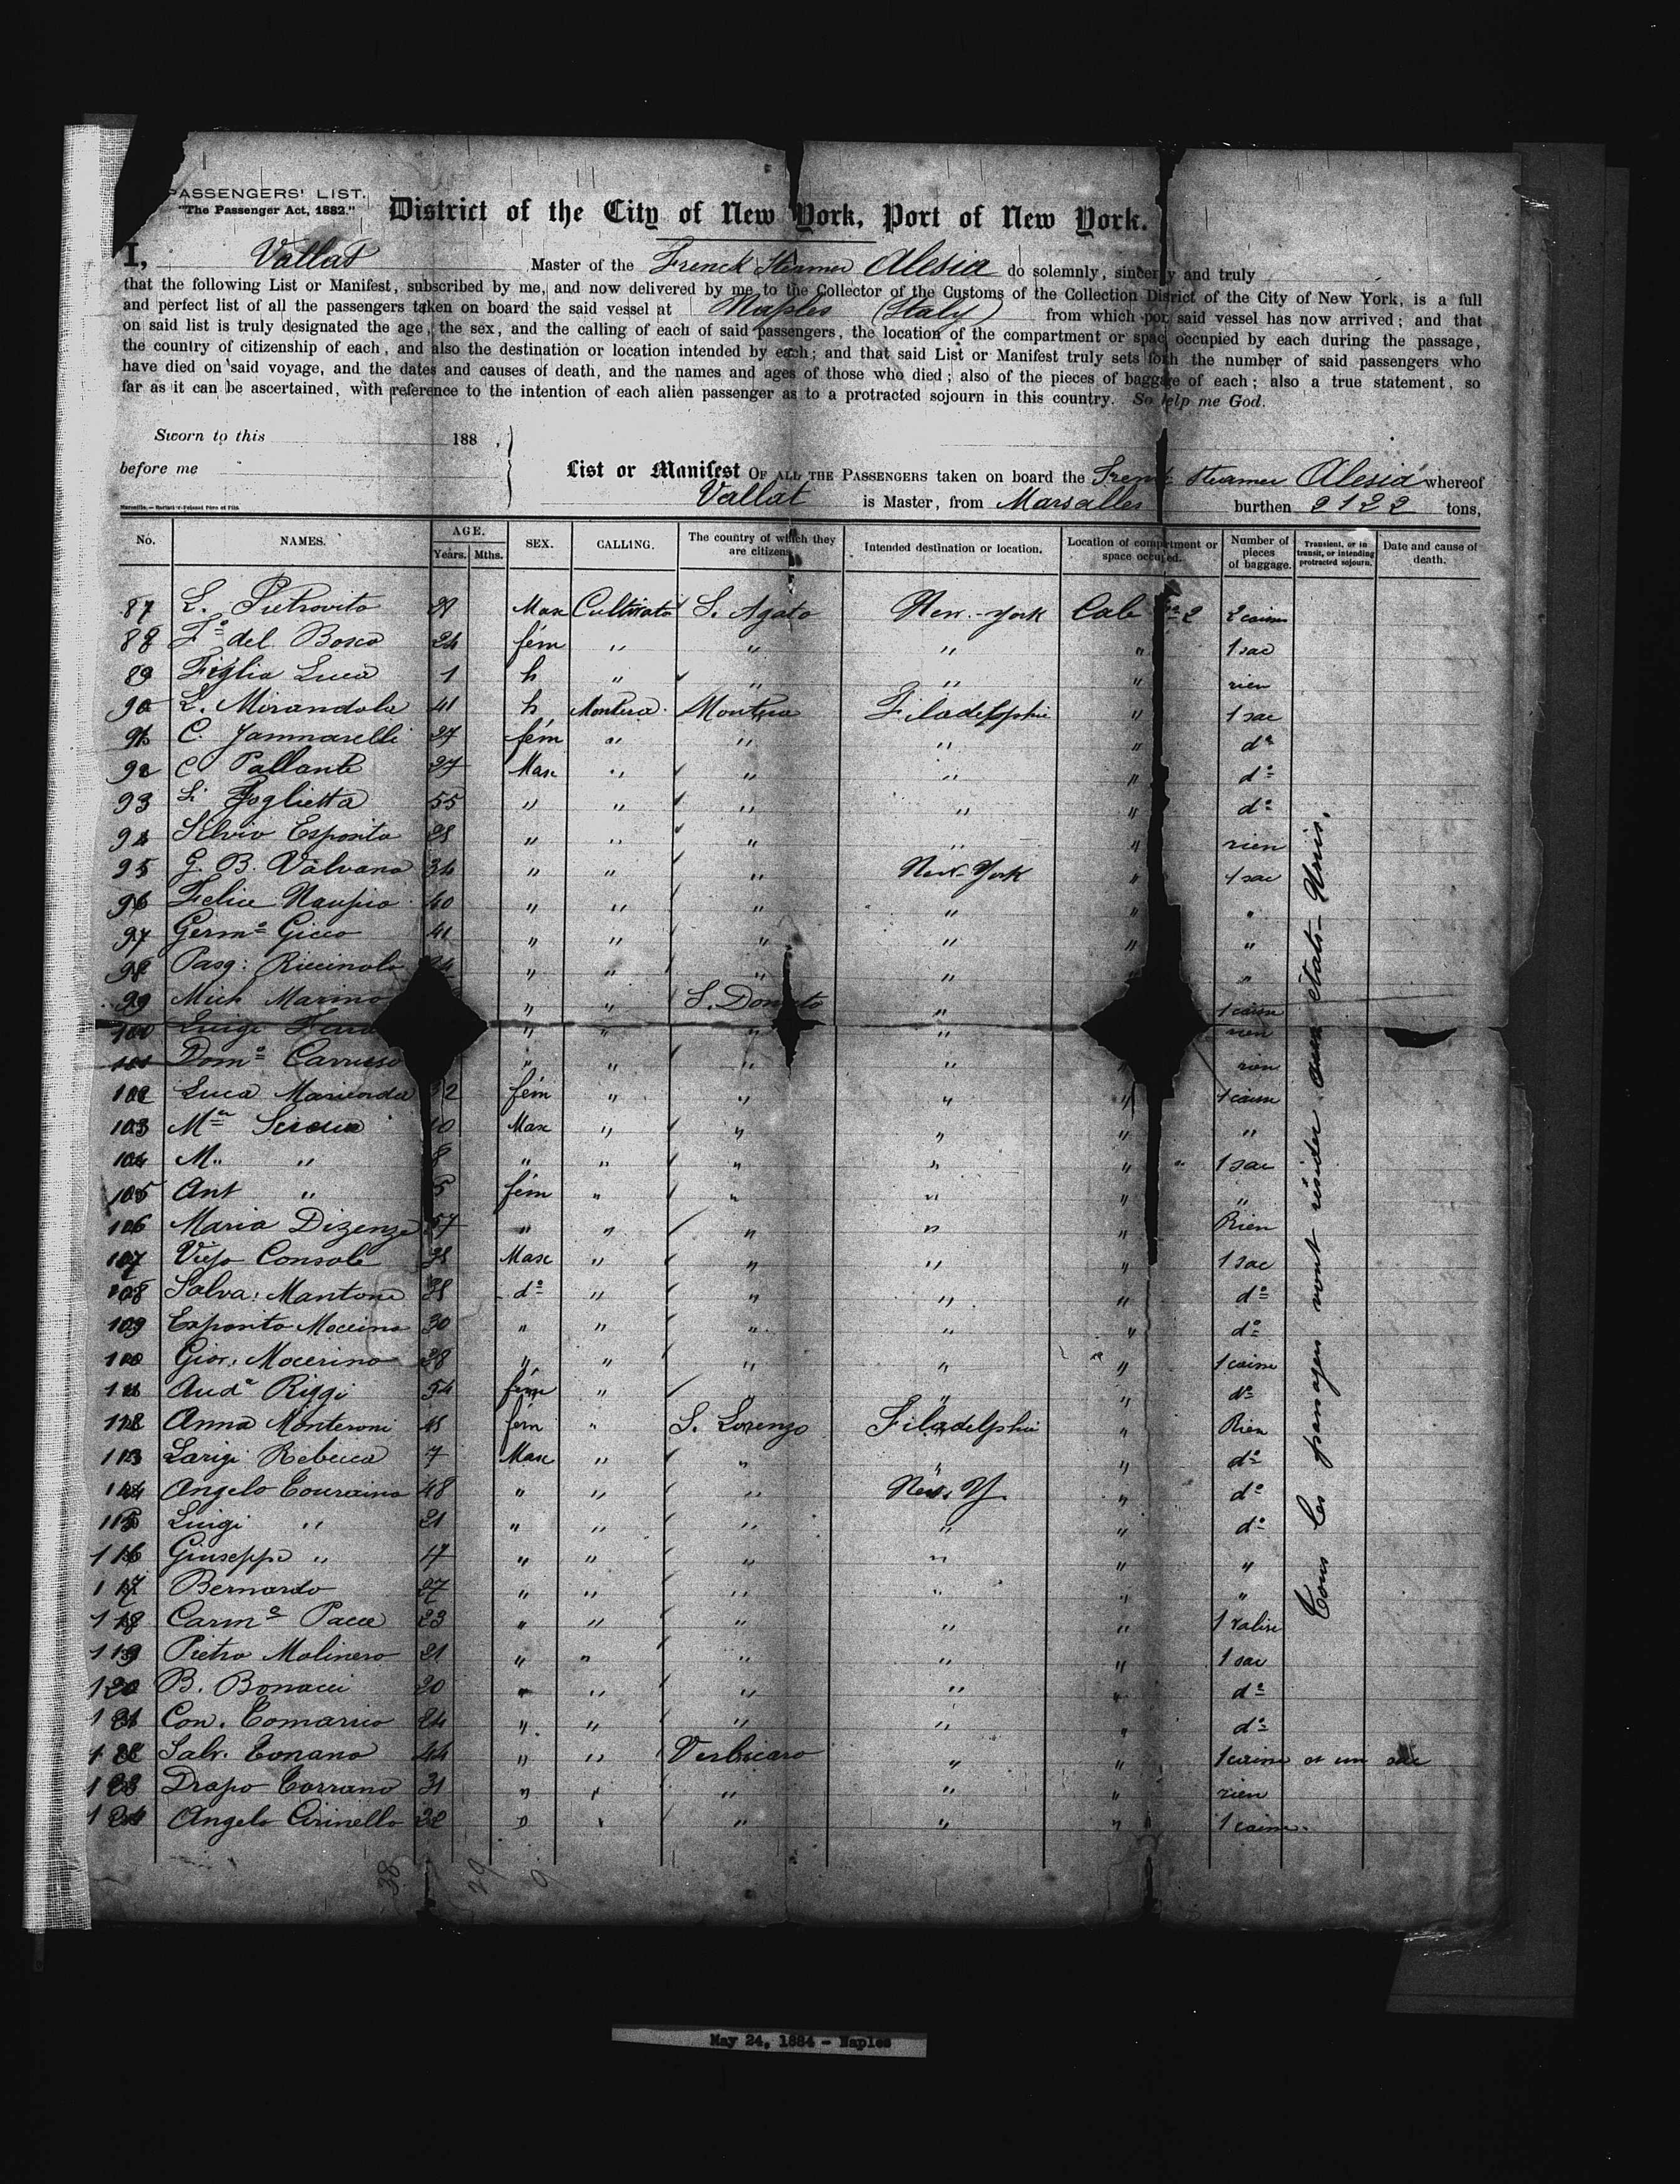 PASSENGERS' LIST.
"The Passenger Act, 1882."
District of the City of New York, Port of New York.
I, Vallat Master of the French Steamer Alesia do solemnly, sincerely and truly
that the following List or Manifest, subscribed by me, and now delivered by me to the Collector of the Customs of the Collection District of the City of New York, is a full
and perfect list of all the passengers taken on board the said vessel at Naples (Italy) from which por said vessel has now arrived; and that
on said list is truly designated the age, the sex, and the calling of each of said passengers, the location of the compartment or spac occupied by each during the passage,
the country of citizenship of each, and also the destination or location intended by each; and that said List or Manifest truly sets foth the number of said passengers who
have died on said voyage, and the dates and causes of death, and the names and ages of those who died; also of the pieces of baggage of each; also a true statement, so
far as it can be ascertained, with reference to the intention of each alien passenger as to a protracted sojourn in this country. So help me God.
Sworn to this 188 ,
before me
List or Manifest OF ALL THE PASSENGERS taken on board the French Steamer Alesia whereof
Vallat is Master, from Marseilles burthen 2122 tons,
No. NAMES. AGE. Years. Mths. SEX. CALLING. The country of which they are citizens. Intended destination or location. Location of compartment or space occupied. Number of pieces of baggage. Transient, or in transit, or intending protracted sojourn. Date and cause of death.
87 L. Pietrovito 29 Masc S. Agato New-York Cale 2
88 Fa del Bosco 24 fém " " " " 1 sac
89 Figlia Luca 1 h " " " " rien
90 L. Mirandola 41 h Filadelphie " 1 sac
91 C. Jammarelli 27 fém " " " " do
92 C. Pallante 27 Masc " " " " do
93 Foglietta 55 " " " " " do
94 Silvio Esposito 28 " " " " " rien
95 G. B. Valvano 34 " " " New-York " 1 sac
96 Felice 40 " " " " " "
97 Germo Gicco 41 " " " " "
98 Pasq: " " " " "
99 Mich Marino " " S. Donato " 1 caisse
100 Luigi " " " " rien
101 Domo Carruso " " " " " rien
102 Luca 2 fém " " " " 1 caisse
103 Ma 10 Masc " " " " "
104 M. " 8 " " " " " 1 sac
105 Ant " 5 fém " " " " "
106 Maria Dizenzo 57 " " " " " Rien
107 Console 38 Masc " " " " 1 sac
108 Salva: Mantone 38 do " " " " do
109 Esposito 30 " " " " " do
110 Gior. Mocerino 28 " " " " " 1 caisse
111 Riggi 54 fém " " " " do
112 Anna Monteroni 48 fém " S. Lorenzo Filadelphie " Rien
113 Larigi Rebecca 7 Masc " " " " do
114 Angelo 48 " " " New. Y. " do
115 Luigi " 21 " " " " " do
116 Giuseppe " 17 " " " " " "
117 Bernardo 27 " " " " " "
118 Carma Pacce 23 " " " " " 1 valise
119 Pietro Molinero 21 " " " " " 1 sac
120 B. Bonacci 20 " " " " " do
121 Con. 24 " " " " " do
122 Salv. 44 " " Verbicaro " " 1 caisse et un sac
123 Drapo 31 " " " " " rien
124 Angelo Cirinello 22 " " " " " 1 caisse
Tous les passagers vont résider aux états-Unis.
38 29 9
May 24, 1884 - Naples